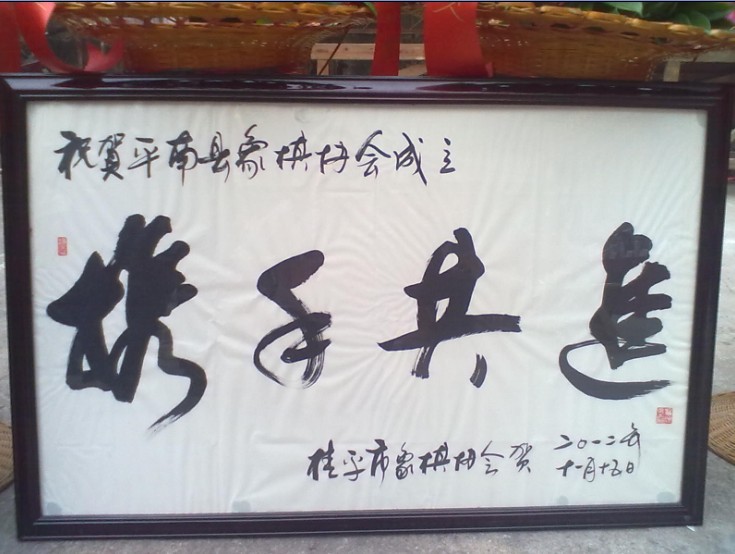 祝賀平南县象棋协会成立
携手共進
桂平市象棋协会贺
二〇一二年
十一月十五日